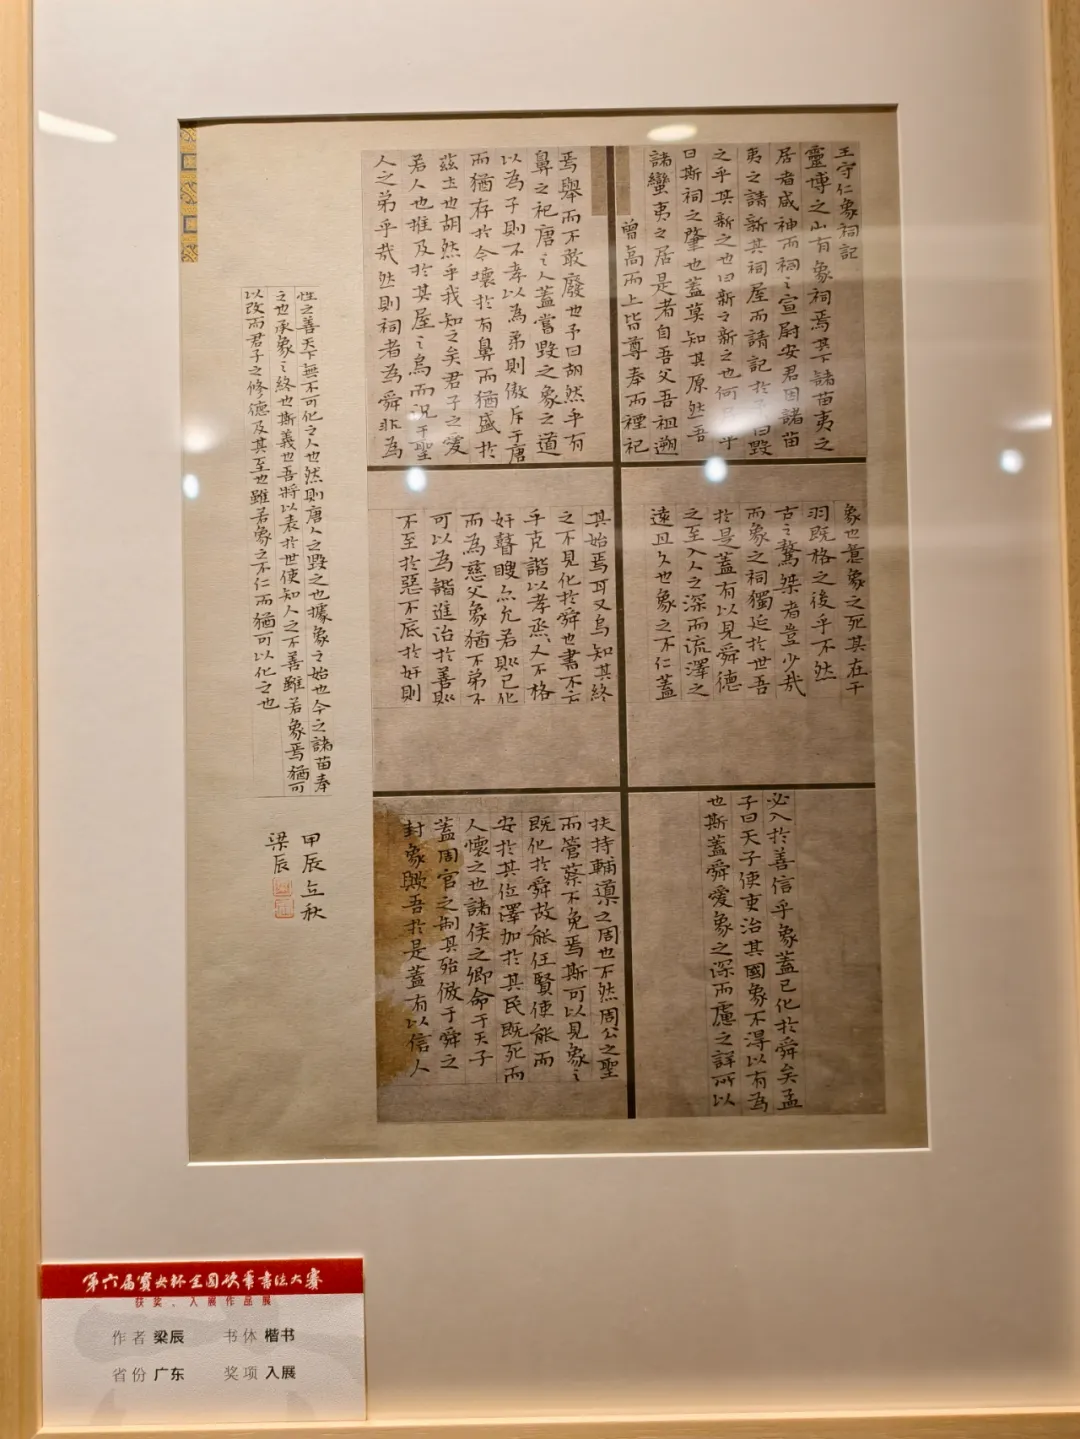 王守仁象祠記
靈博之山有象祠焉其下諸苗夷之
居者咸神而祠之宣尉安君因諸苗
夷之請新其祠屋而請記於予予曰毀
之乎其新之也曰新之新之也何居乎
曰斯祠之肇也蓋莫知其原然吾
諸蠻夷之居是者自吾父吾祖遡
曾高而上皆尊奉而禋祀
焉舉而不敢廢也予曰胡然乎有
鼻之祀唐之人蓋嘗毀之象之道
以為子則不孝以為弟則傲斥于唐
而猶存於今壞於有鼻而猶盛於
茲土也胡然乎我知之矣君子之愛
若人也推及於其屋之烏而況于聖
人之弟乎哉然則祠者為舜非為
象也意象之死其在干
羽既格之後乎不然
古之驁桀者豈少哉
而象之祠獨延於世吾
於是蓋有以見舜德
之至入人之深而流澤之
遠且久也象之不仁蓋
其始焉耳又烏知其終
之不見化於舜也書不云
乎克諧以孝烝乂不格
奸瞽瞍亦允若則已化
而為慈父象猶不弟不
可以為諧進治於善則
不至於惡不底於奸則
必入於善信乎象蓋已化於舜矣孟
子曰天子使吏治其國象不得以有為
也斯蓋舜愛象之深而慮之詳所以
扶持輔導之周也不然周公之聖
而管蔡不免焉斯可以見象之
既化於舜故能任賢使能而
安於其位澤加於其民既死而
人懷之也諸侯之卿命于天子
蓋周官之制其殆倣于舜之
封象歟吾於是蓋有以信人
性之善天下無不可化之人也然則唐人之毀之也據象之始也今之諸苗奉
之也承象之終也斯義也吾將以表於世使知人之不善雖若象焉猶可
以改而君子之修德及其至也雖若象之不仁而猶可以化之也
甲辰立秋
梁辰
第六届寳安杯全国硬筆書法大賽
获奖、入展作品展
作者 梁辰 书体 楷书
省份 广东 奖项 入展